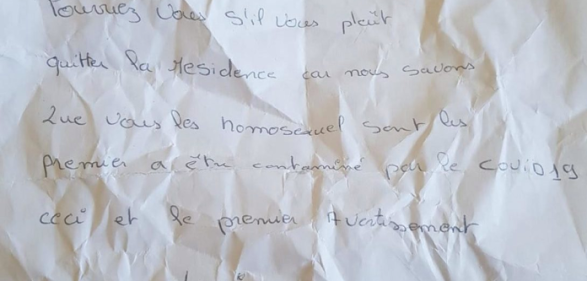 Pouvez vous s'il vous plaît
quitter la residence car nous savons
Que vous les homosexuel sont les
premier a être contaminé par le covid19
ceci et le premier Avertissement